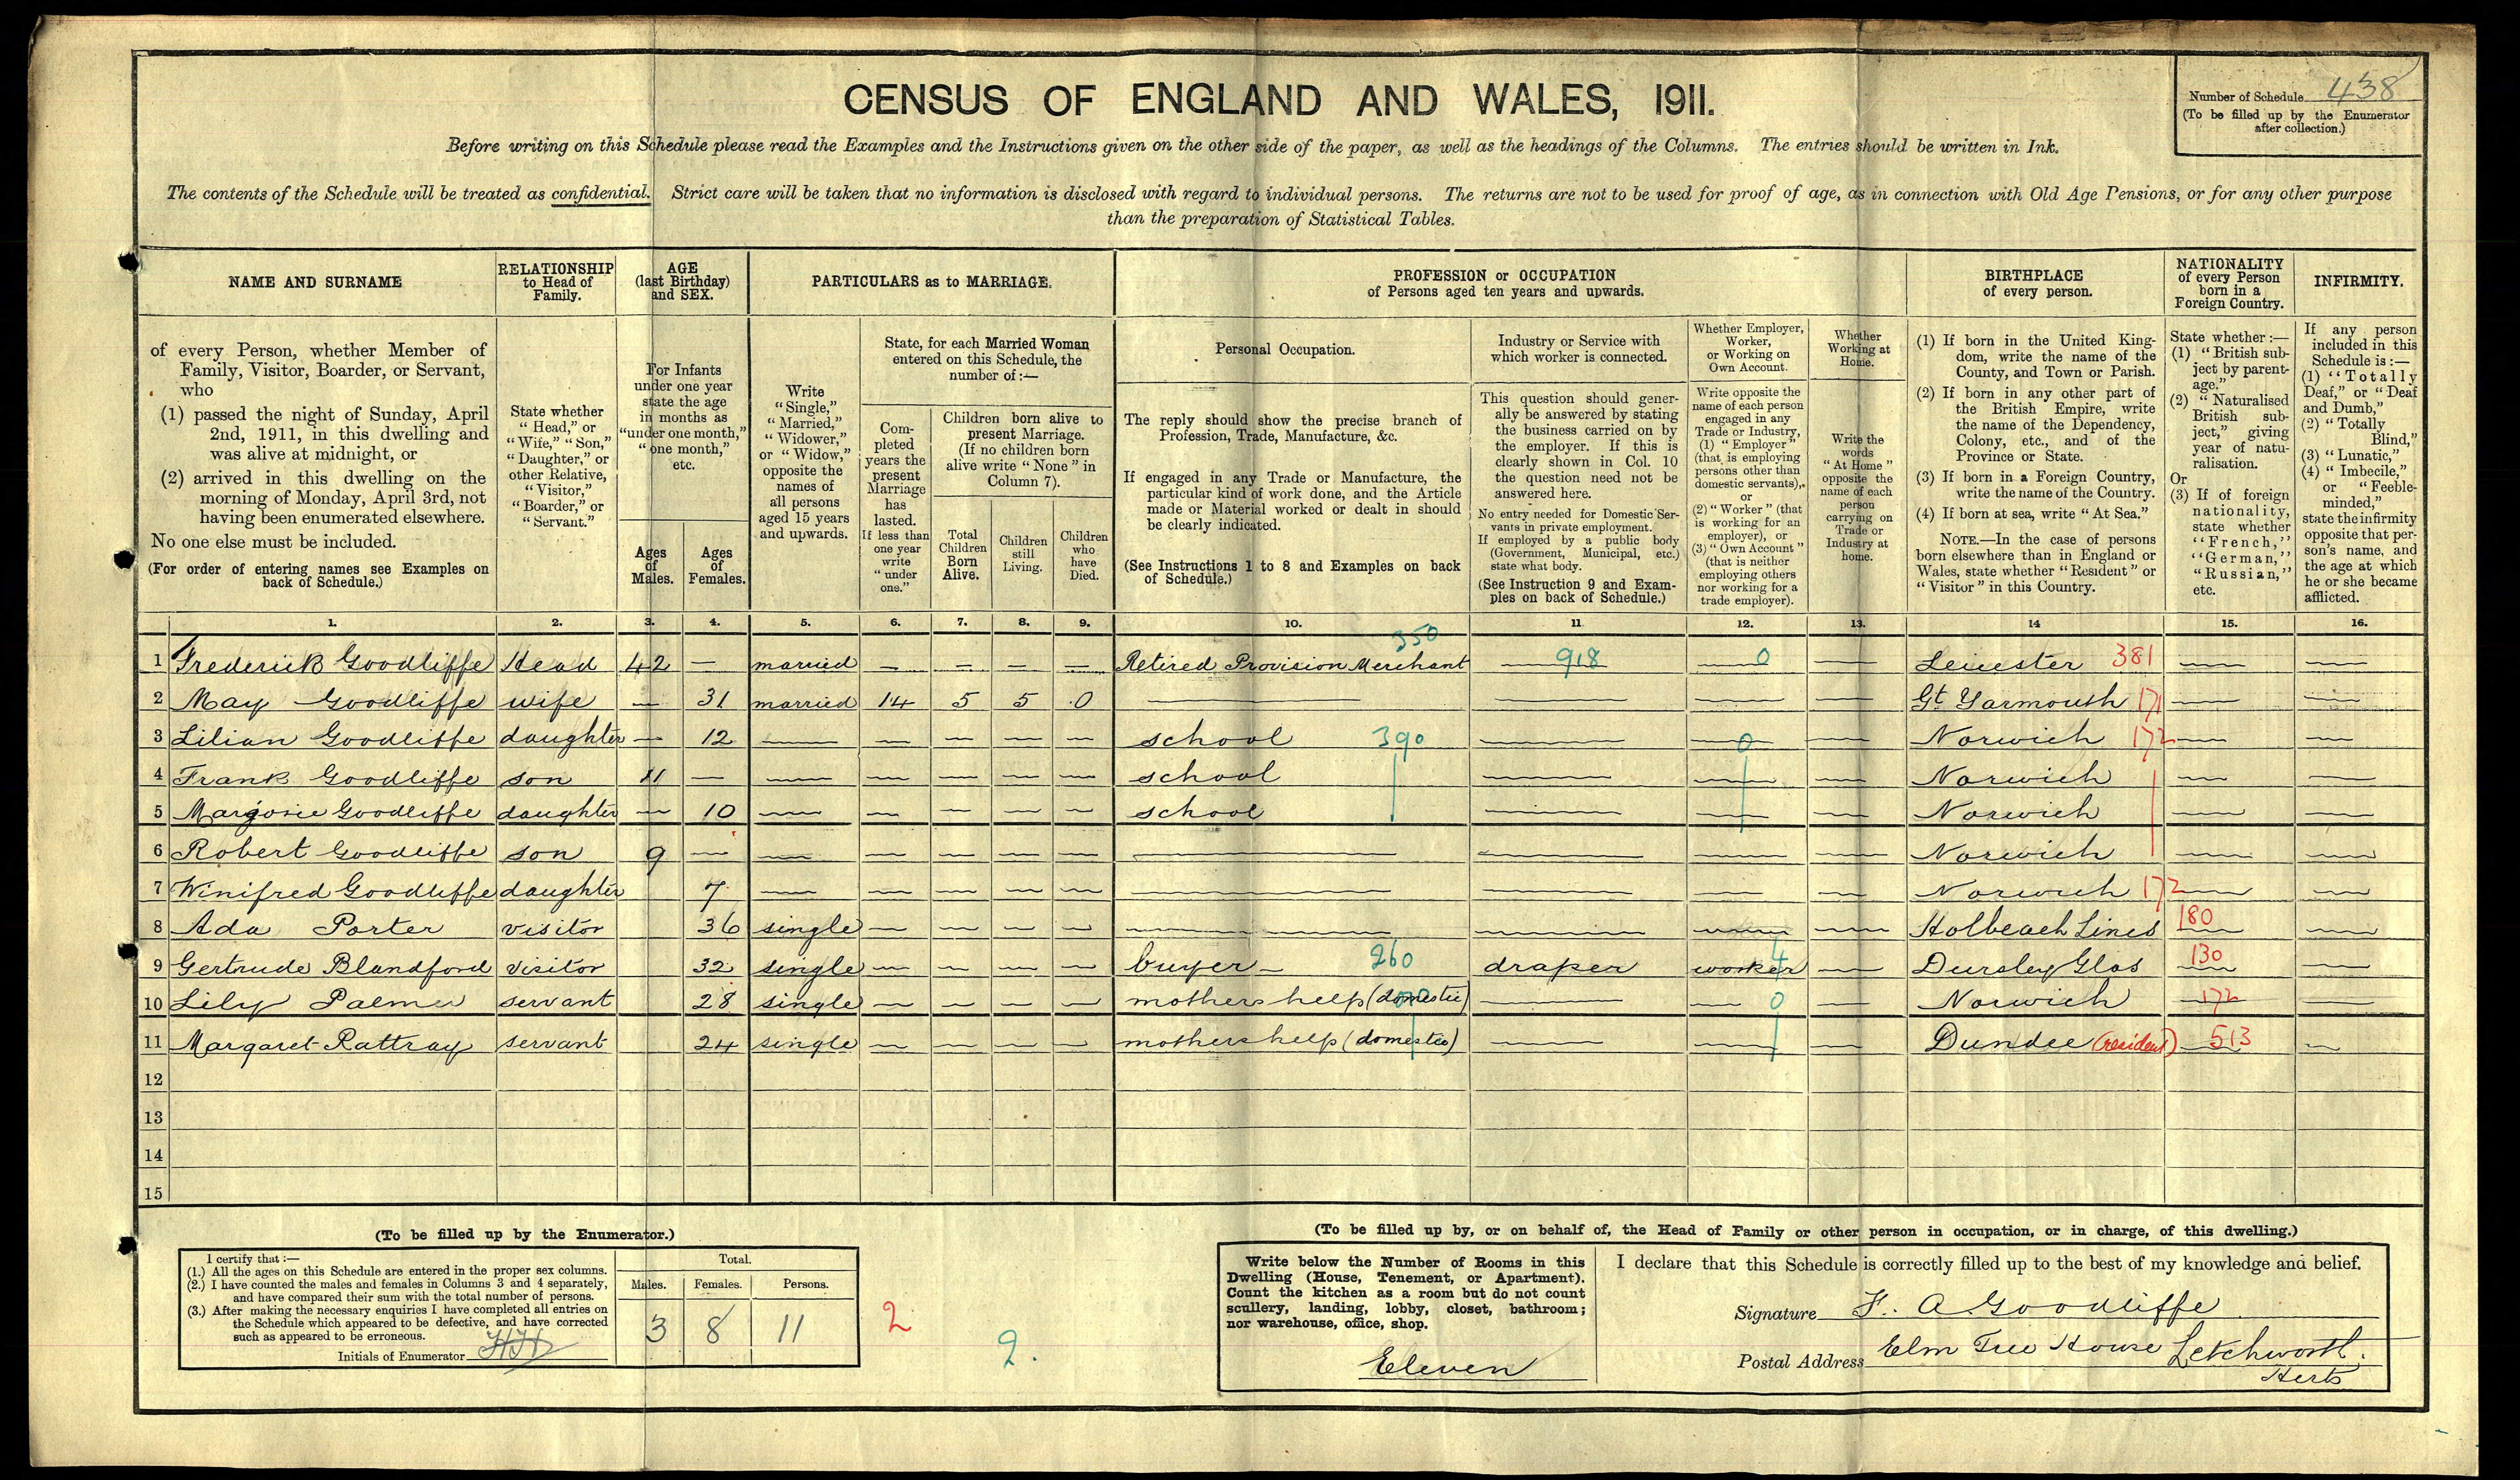 CENSUS OF ENGLAND AND WALES, 1911.
Number of Schedule 438
(To be filled up by the Enumerator
after collection.)
Before writing on this Schedule please read the Examples and the Instructions given on the other side of the paper, as well as the headings of the Columns. The entries should be written in Ink.
The contents of the Schedule will be treated as confidential. Strict care will be taken that no information is disclosed with regard to individual persons. The returns are not to be used for proof of age, as in connection with Old Age Pensions, or for any other purpose
than the preparation of Statistical Tables.
NAME AND SURNAME
of every Person, whether Member of
Family, Visitor, Boarder, or Servant,
who
(1) passed the night of Sunday, April
2nd, 1911, in this dwelling and
was alive at midnight, or
(2) arrived in this dwelling on the
morning of Monday, April 3rd, not
having been enumerated elsewhere.
No one else must be included.
(For order of entering names see Examples on
back of Schedule.)
RELATIONSHIP
to Head of
Family.
State whether
"Head," or
"Wife," "Son,"
"Daughter," or
other Relative,
"Visitor,"
"Boarder," or
"Servant."
AGE
(last Birthday)
and SEX.
For Infants
under one year
state the age
in months as
"under one month,"
"one month,"
etc.
Ages
of
Males.
Ages
of
Females.
PARTICULARS as to MARRIAGE.
Write
"Single,"
"Married,"
"Widower,"
or "Widow,"
opposite the
names of
all persons
aged 15 years
and upwards.
State, for each Married Woman
entered on this Schedule, the
number of :—
Com-
pleted
years the
present
Marriage
has
lasted.
If less than
one year
write
"under
one."
Children born alive to
present Marriage.
(If no children born
alive write "None" in
Column 7).
Total
Children
Born
Alive.
Children
still
Living.
Children
who
have
Died.
PROFESSION or OCCUPATION
of Persons aged ten years and upwards.
Personal Occupation.
The reply should show the precise branch of
Profession, Trade, Manufacture, &c.
If engaged in any Trade or Manufacture, the
particular kind of work done, and the Article
made or Material worked or dealt in should
be clearly indicated.
(See Instructions 1 to 8 and Examples on back
of Schedule.)
Industry or Service with
which worker is connected.
This question should gener-
ally be answered by stating
the business carried on by
the employer. If this is
clearly shown in Col. 10
the question need not be
answered here.
No entry needed for Domestic Ser-
vants in private employment.
If employed by a public body
(Government, Municipal, etc.)
state what body.
(See Instruction 9 and Exam-
ples on back of Schedule.)
Whether Employer,
Worker,
or Working on
Own Account.
Write opposite the
name of each person
engaged in any
Trade or Industry,
(1) "Employer"
(that is employing
persons other than
domestic servants),
or
(2) "Worker" (that
is working for an
employer), or
(3) "Own Account"
(that is neither
employing others
nor working for a
trade employer).
Whether
Working at
Home.
Write the
words
"At Home"
opposite the
name of each
person
carrying on
Trade or
Industry at
home.
BIRTHPLACE
of every person.
(1) If born in the United King-
dom, write the name of the
County, and Town or Parish.
(2) If born in any other part of
the British Empire, write
the name of the Dependency,
Colony, etc., and of the
Province or State.
(3) If born in a Foreign Country,
write the name of the Country.
(4) If born at sea, write "At Sea."
NOTE.—In the case of persons
born elsewhere than in England or
Wales, state whether "Resident" or
"Visitor" in this Country.
NATIONALITY
of every Person
born in a
Foreign Country.
State whether :—
(1) "British sub-
ject by parent-
age."
(2) "Naturalised
British sub-
ject," giving
year of natu-
ralisation.
Or
(3) If of foreign
nationality,
state whether
"French,"
"German,"
"Russian,"
etc.
INFIRMITY.
If any person
included in this
Schedule is :—
(1) "Totally
Deaf," or "Deaf
and Dumb,"
(2) "Totally
Blind,"
(3) "Lunatic,"
(4) "Imbecile,"
or "Feeble-
minded,"
state the infirmity
opposite that per-
son's name, and
the age at which
he or she became
afflicted.
1. 2. 3. 4. 5. 6. 7. 8. 9. 10. 11 12. 13. 14 15. 16.
350
1 Frederick Goodliffe Head 42 — married — — — — Retired Provision Merchant 918 0 — Leicester 381 — —
2 May Goodliffe wife — 31 married 14 5 5 0 — — — — Gt Yarmouth 171 — —
3 Lilian Goodliffe daughter — 12 — — — — — school 390 — 0 — Norwich 172 — —
4 Frank Goodliffe son 11 — — — — — — school — — — Norwich — —
5 Marjorie Goodliffe daughter — 10 — — — — — school — — — Norwich — —
6 Robert Goodliffe son 9 — — — — — — — — — — Norwich — —
7 Winifred Goodliffe daughter 7 — — — — — — — — — Norwich 172 — —
8 Ada Porter visitor 36 single — — — — — — — — Holbeach Lincs 180 —
9 Gertrude Blandford visitor 32 single — — — — buyer 260 draper worker 4 — Dursley Glos 130 —
10 Lily Palmer servant 28 single — — — — mothers help (domestic) — 0 — Norwich 172 —
11 Margaret Rattray servant 24 single — — — — mothers help (domestic) — — — Dundee (resident) 513 —
12
13
14
15
(To be filled up by the Enumerator.)
I certify that :—
(1.) All the ages on this Schedule are entered in the proper sex columns.
(2.) I have counted the males and females in Columns 3 and 4 separately,
and have compared their sum with the total number of persons.
(3.) After making the necessary enquiries I have completed all entries on
the Schedule which appeared to be defective, and have corrected
such as appeared to be erroneous.
Initials of Enumerator
Total.
Males. Females. Persons.
3 8 11
2
2.
(To be filled up by, or on behalf of, the Head of Family or other person in occupation, or in charge, of this dwelling.)
Write below the Number of Rooms in this
Dwelling (House, Tenement, or Apartment).
Count the kitchen as a room but do not count
scullery, landing, lobby, closet, bathroom;
nor warehouse, office, shop.
Eleven
I declare that this Schedule is correctly filled up to the best of my knowledge and belief.
Signature F. A Goodliffe
Postal Address Elm Tree House Letchworth.
Herts